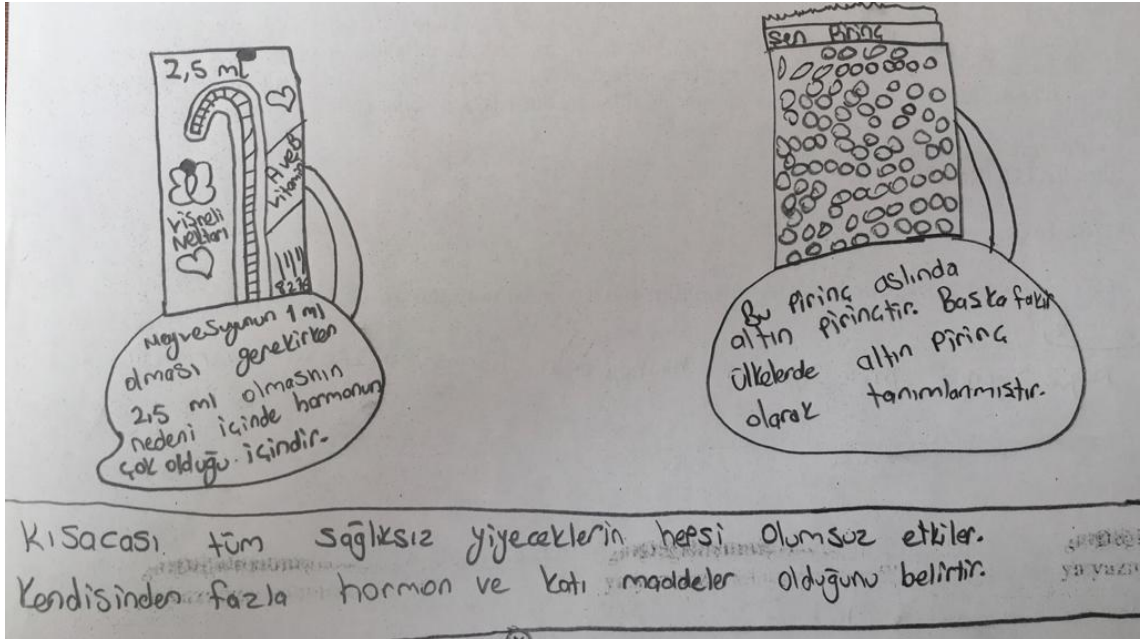 2,5 ml
Vişneli
Nektarı
A ve B
vitamini
Şen Pirinç
Meyvesuyunun 1 ml
olması gerekirken
2,5 ml olmasının
nedeni içinde hormonun
çok olduğu içindir.
Bu pirinç aslında
altın pirinçtir. Baska fakir
ülkelerde altın pirinç
olarak tanımlanmıştır.
Kısacası tüm sağlıksız yiyeceklerin hepsi olumsuz etkiler.
Kendisinden fazla hormon ve katı maddeler olduğunu belirtir.